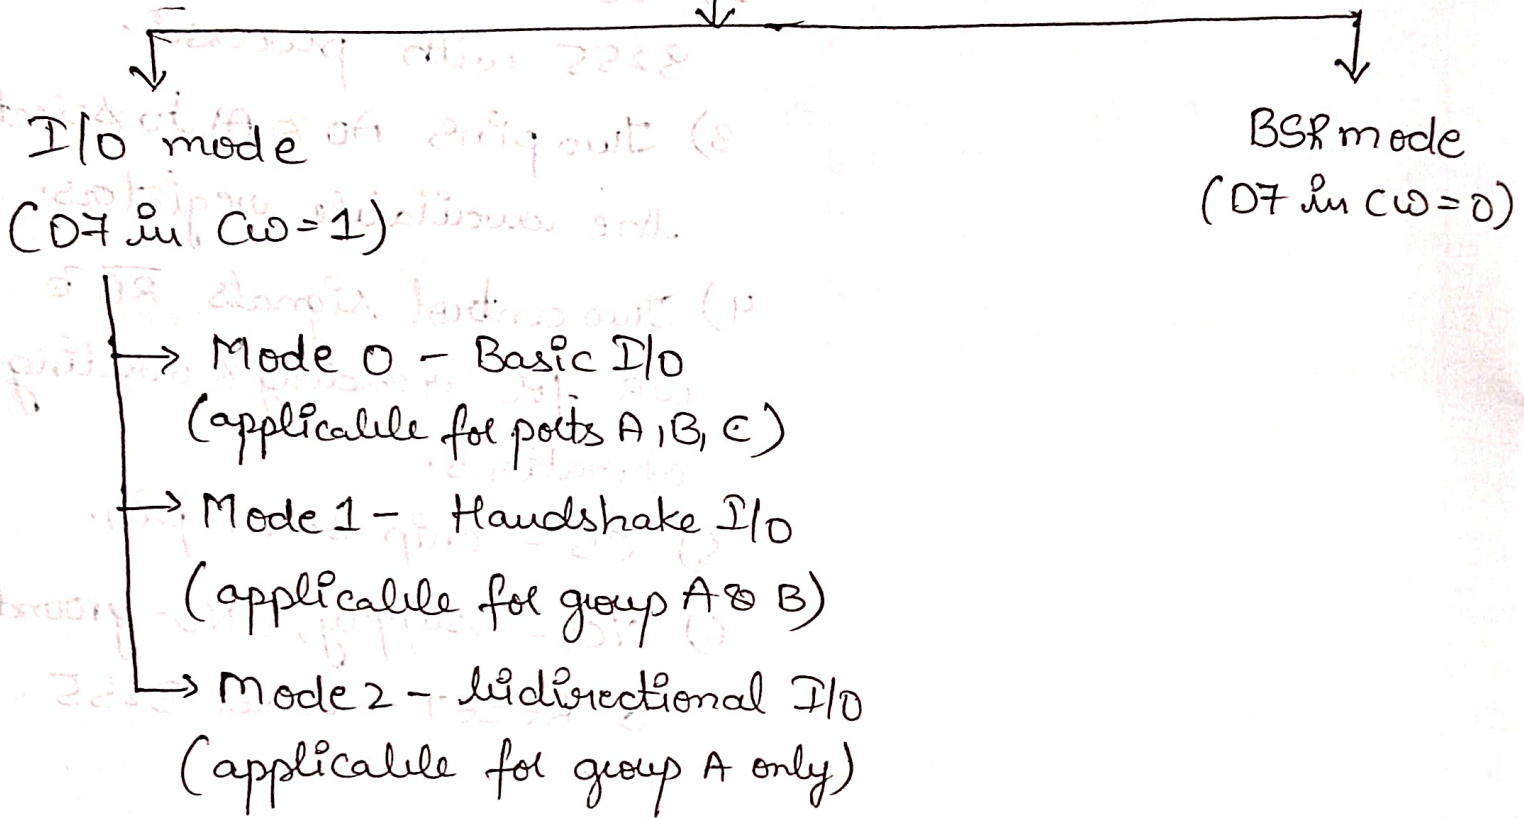 I/O mode
(D7 in CW=1)
BSR mode
(D7 in CW=0)
→ Mode 0 - Basic I/O
(applicable for ports A, B, C)
→ Mode 1 - Handshake I/O
(applicable for group A & B)
→ Mode 2 - bidirectional I/O
(applicable for group A only)